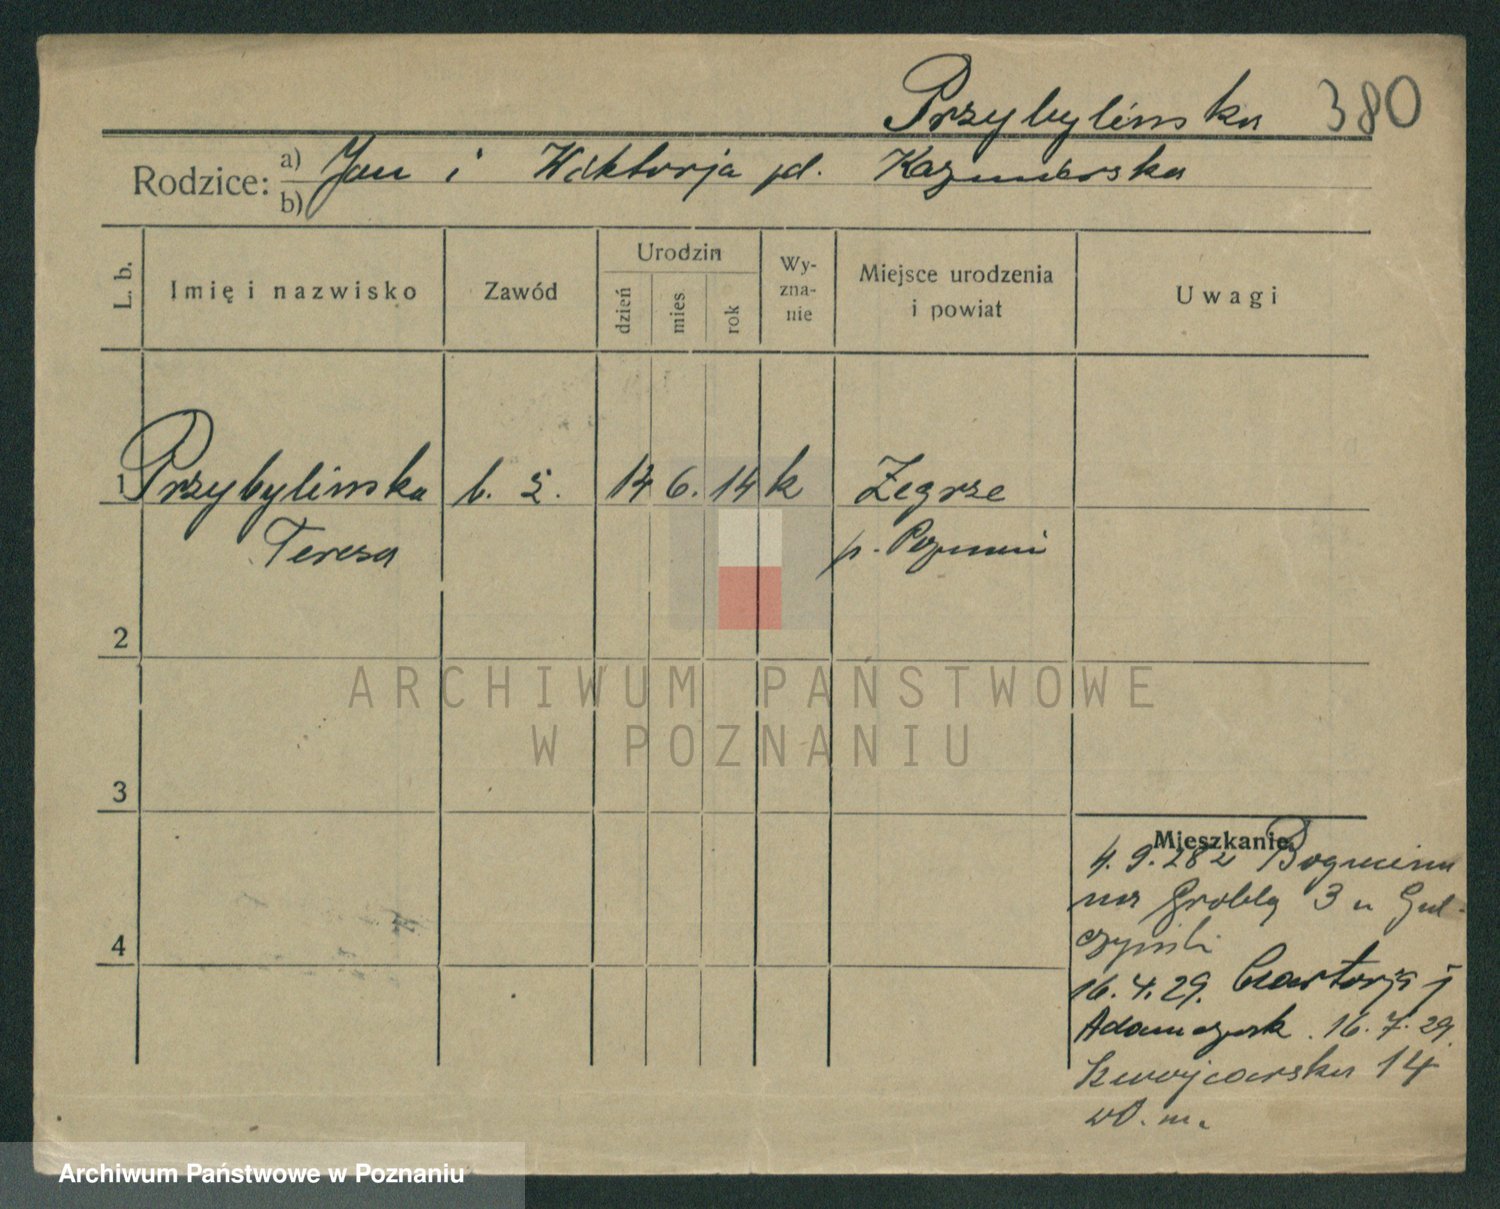 Przybylińska 380
Rodzice: a) Jan i Wiktorja pd. Kazmierska
b)
L. b.
Imię i nazwisko
Zawód
Urodzin
dzień
mies
rok
Wy-
zna-
nie
Miejsce urodzenia
i powiat
Uwagi
1 Przybylińska b. z. 14 6. 14 k Zegrze
Teresa p. Poznań
2
3
4
Mieszkanie
4. 9. 28 z Bogucina
na Groblę 3 u Gul-
czyński
16. 4. 29.
Adamczyk. 16. 7. 29.
Szwajcarska 14
wD. m.
ARCHIWUM PAŃSTWOWE
W POZNANIU
Archiwum Państwowe w Poznaniu